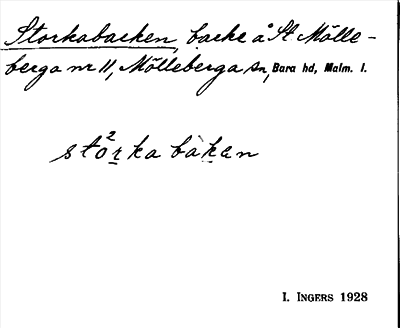 Storkabacken, backe å St Mölle-
berga nr 11, Mölleberga sn, Bara hd, Malm. l.
sto²rka bàkan
I. INGERS 1928